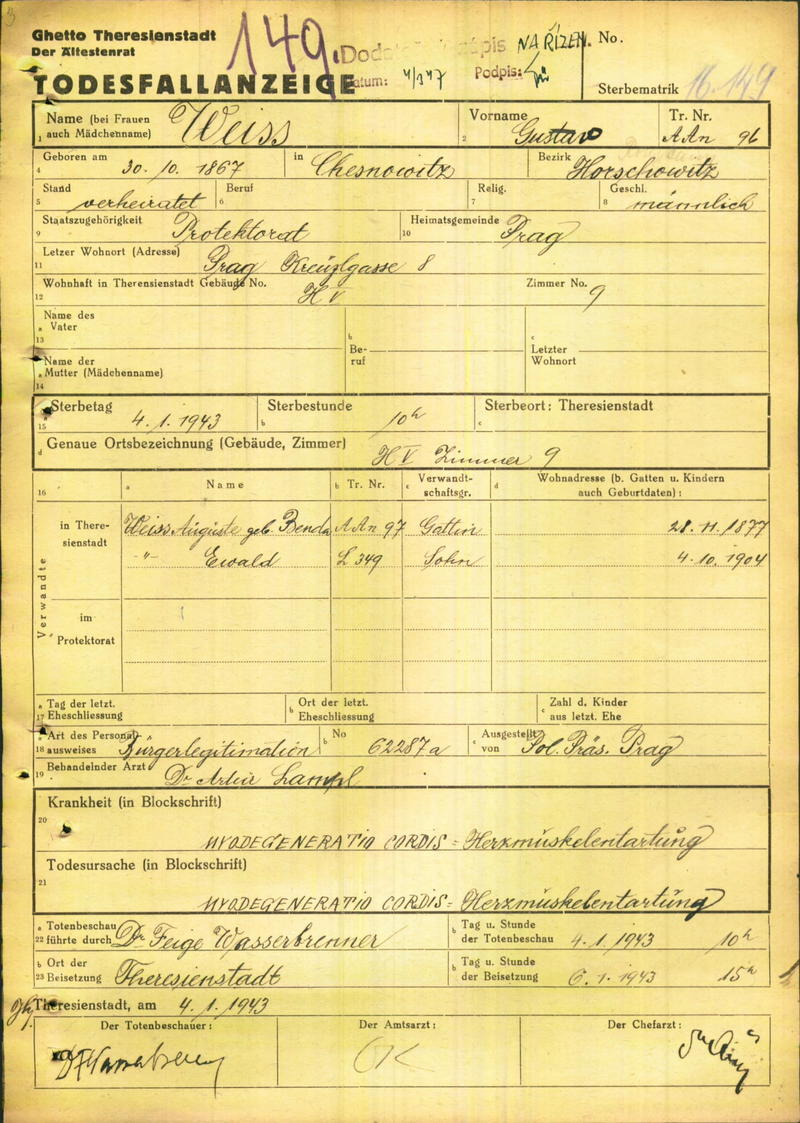 Ghetto Theresienstadt
Der Ältestenrat
149.
NAŘÍZEN.
No.
Datum: 4/3 47
Podpis:
TODESFALLANZEIGE
Sterbematrik 16-149
Name (bei Frauen auch Mädchenname) Weiss
Vorname Gustav
Tr. Nr. AAn 96
1
2
Geboren am 30. 10. 1867 in Chesnowitz Bezirk Horschowitz
4
Stand verheiratet Beruf Relig. Geschl. männlich
5 6 7 8
Staatszugehörigkeit Protektorat Heimatsgemeinde Prag
9 10
Letzer Wohnort (Adresse)
11 Prag Kreuzlgasse 8
Wohnhaft in Theresienstadt Gebäude No. H V Zimmer No. 9
12
Name des
a Vater
13
b Beruf
c Letzter Wohnort
Name der
a Mutter (Mädchenname)
14
Sterbetag 4. 1. 1943 Sterbestunde 10h Sterbeort: Theresienstadt
15 b c
d Genaue Ortsbezeichnung (Gebäude, Zimmer) H V Zimmer 9
16 a Name b Tr. Nr. c Verwandtschaftsgr. d Wohnadresse (b. Gatten u. Kindern auch Geburtdaten):
Verwandte
in Theresienstadt Weiss Auguste geb. Benda AAn 97 Gattin 28. 11. 1877
-"- Ewald L 349 Sohn 4. 10. 1904
im Protektorat
a Tag der letzt. b Ort der letzt. c Zahl d. Kinder
17 Eheschliessung Eheschliessung aus letzt. Ehe
a Art des Personal- b No c Ausgestellt
18 ausweises Bürgerlegitimation 62287a von Pol. Präs. Prag
Behandelnder Arzt
19 Dr Artur Lampl
Krankheit (in Blockschrift)
20
MYODEGENERATIO CORDIS = Herzmuskelentartung
Todesursache (in Blockschrift)
21
MYODEGENERATIO CORDIS = Herzmuskelentartung
a Totenbeschau b Tag u. Stunde
22 führte durch Dr Feige Wasserbrenner der Totenbeschau 4. 1. 1943 10h
b Ort der b Tag u. Stunde
23 Beisetzung Theresienstadt der Beisetzung 6. 1. 1943 15h
Theresienstadt, am 4. 1. 1943
Der Totenbeschauer: Der Amtsarzt: Der Chefarzt: